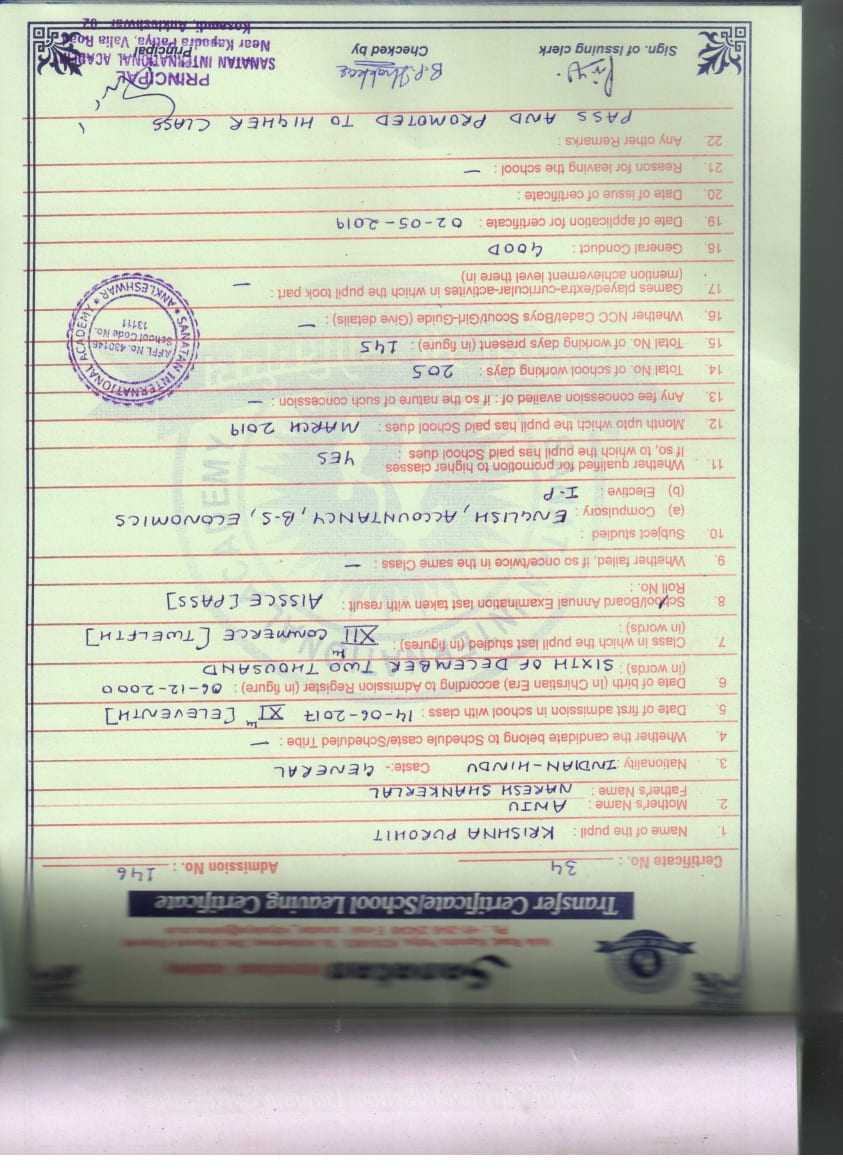 Sanatan
Transfer Certificate/School Leaving Certificate
Certificate No. : 34 Admission No. : 146
1. Name of the pupil : KRISHNA PUROHIT
2. Mother's Name : ANJU
Father's Name : NARESH SHANKERLAL
3. Nationality : INDIAN-HINDU Caste:- GENERAL
4. Whether the candidate belong to Schedule caste/Scheduled Tribe : —
5. Date of first admission in school with class : 14-06-2017 XIth [ELEVENTH]
6. Date of birth (In Chirstian Era) according to Admission Register (in figure) : 06-12-2000
(in words) : SIXTH OF DECEMBER TWO THOUSAND
7. Class in which the pupil last studied (in figures) : XIIth COMMERCE [TWELFTH]
(in words) :
8. School/Board Annual Examination last taken with result : AISSCE [PASS]
Roll No. :
9. Whether failed, if so once/twice in the same Class : —
10. Subject studied :
(a) Compulsory : ENGLISH, ACCOUNTANCY, B-S, ECONOMICS
(b) Elective : I-P
11. Whether qualified for promotion to higher classes
If so, to which the pupil has paid School dues : YES
12. Month upto which the pupil has paid School dues : MARCH 2019
13. Any fee concession availed of : if so the nature of such concession : —
14. Total No. of school working days : 205
15. Total No. of working days present (in figure) : 145
16. Whether NCC Cadet/Boys Scout/Girl-Guide (Give details) : —
17. Games played/extra-curricular-activites in which the pupil took part : —
(mention achievement level there in)
18. General Conduct : GOOD
19. Date of application for certificate : 02-05-2019
20. Date of issue of certificate :
21. Reason for leaving the school : —
22. Any other Remarks :
PASS AND PROMOTED TO HIGHER CLASS
SANATAN INTERNATIONAL ACADEMY * ANKLESHWAR *
AFFI. No. 430146
School Code No.
13111
B.P. Thakkar
Sign. of Issuing clerk Checked by Principal
PRINCIPAL
SANATAN INTERNATIONAL ACADEM
Near Kapodra Patiya, Valia Road
Kosamdi, Ankleshwar
INTERNATIONAL ACADEMY